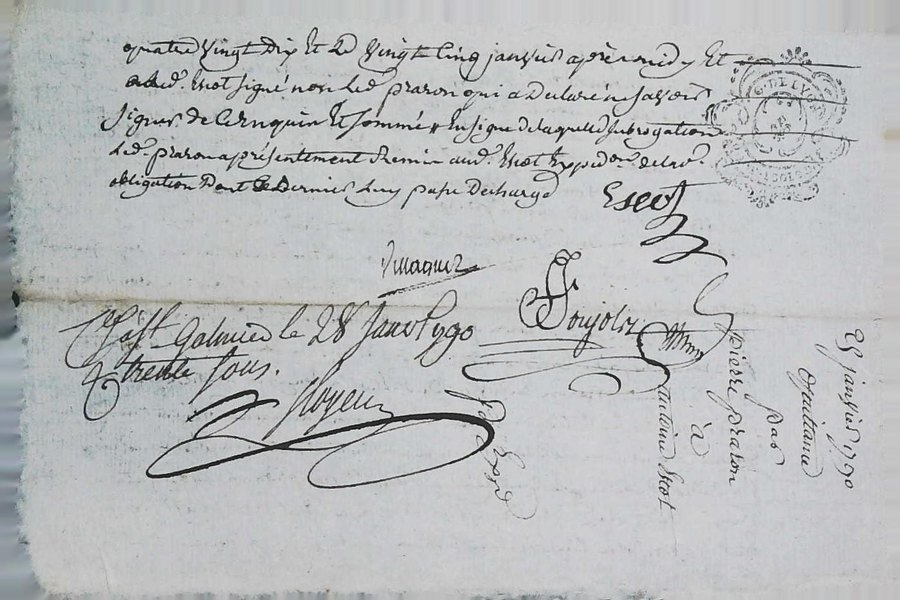 quatre Vingt Dix Et Le Vingt Cinq janvier après midy Et
aud. Escot signé non led. prazon qui a Declaré ne savoir
signer de ce enquis Et sommé Ensigne de laquelle subrogation
Led. prazon a présentement Remis aud. Escot Expedon. de lad.
obligation Dont Ce Dernier Luy passe Decharge
Escot
galmier le 28 Janv 1790
trente sous.
Royer
25 janvier 1790
quittance
par
pierre prazon
à
antoine Escot
Expd